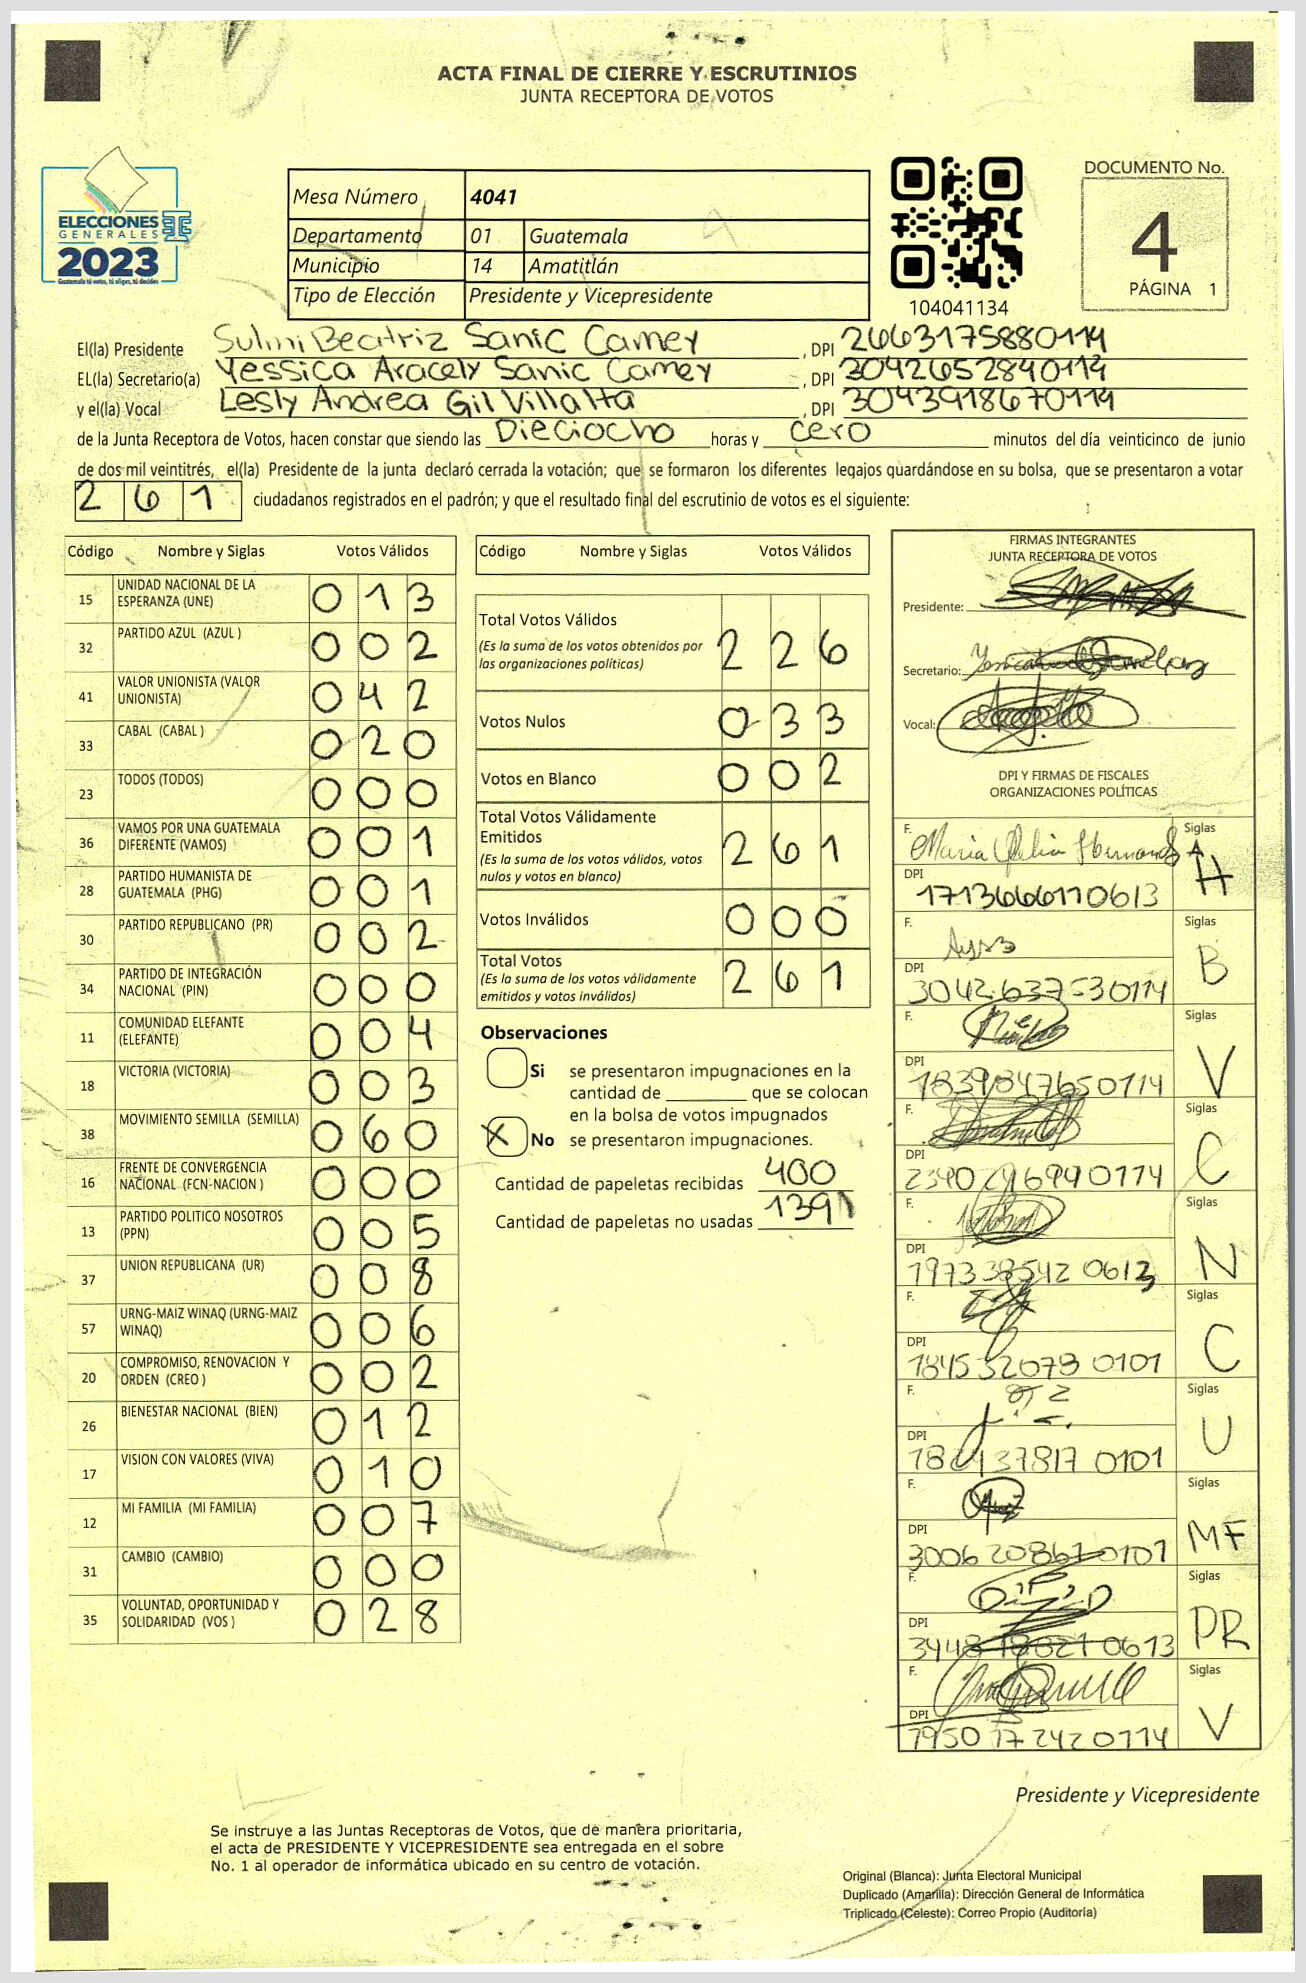 ACTA FINAL DE CIERRE Y ESCRUTINIOS
JUNTA RECEPTORA DE VOTOS
ELECCIONES
GENERALES
2023
Guatemala tú votas, tú eliges, tú decides
Mesa Número 4041
Departamento 01 Guatemala
Municipio 14 Amatitlán
Tipo de Elección Presidente y Vicepresidente
104041134
DOCUMENTO No.
4
PÁGINA 1
El(la) Presidente Sulmi Beatriz Sanic Camey, DPI 2663175880114
EL(la) Secretario(a) Yessica Aracely Sanic Camey, DPI 3042652840114
y el(la) Vocal Lesly Andrea Gil Villalta, DPI 3043918670114
de la Junta Receptora de Votos, hacen constar que siendo las Dieciocho horas y cero minutos del día veinticinco de junio
de dos mil veintitrés, el(la) Presidente de la junta declaró cerrada la votación; que se formaron los diferentes legajos quardándose en su bolsa, que se presentaron a votar
261 ciudadanos registrados en el padrón; y que el resultado final del escrutinio de votos es el siguiente:
Código Nombre y Siglas Votos Válidos
15 UNIDAD NACIONAL DE LA ESPERANZA (UNE) 013
32 PARTIDO AZUL (AZUL ) 002
41 VALOR UNIONISTA (VALOR UNIONISTA) 042
33 CABAL (CABAL ) 020
23 TODOS (TODOS) 000
36 VAMOS POR UNA GUATEMALA DIFERENTE (VAMOS) 001
28 PARTIDO HUMANISTA DE GUATEMALA (PHG) 001
30 PARTIDO REPUBLICANO (PR) 002
34 PARTIDO DE INTEGRACIÓN NACIONAL (PIN) 000
11 COMUNIDAD ELEFANTE (ELEFANTE) 004
18 VICTORIA (VICTORIA) 003
38 MOVIMIENTO SEMILLA (SEMILLA) 060
16 FRENTE DE CONVERGENCIA NACIONAL (FCN-NACION ) 000
13 PARTIDO POLITICO NOSOTROS (PPN) 005
37 UNION REPUBLICANA (UR) 008
57 URNG-MAIZ WINAQ (URNG-MAIZ WINAQ) 006
20 COMPROMISO, RENOVACION Y ORDEN (CREO ) 002
26 BIENESTAR NACIONAL (BIEN) 012
17 VISION CON VALORES (VIVA) 010
12 MI FAMILIA (MI FAMILIA) 007
31 CAMBIO (CAMBIO) 000
35 VOLUNTAD, OPORTUNIDAD Y SOLIDARIDAD (VOS ) 028
Código Nombre y Siglas Votos Válidos
Total Votos Válidos 226
(Es la suma de los votos obtenidos por
las organizaciones políticas)
Votos Nulos 033
Votos en Blanco 002
Total Votos Válidamente
Emitidos 261
(Es la suma de los votos válidos, votos
nulos y votos en blanco)
Votos Inválidos 000
Total Votos 261
(Es la suma de los votos válidamente
emitidos y votos inválidos)
Observaciones
Si se presentaron impugnaciones en la
cantidad de que se colocan
en la bolsa de votos impugnados
X No se presentaron impugnaciones.
Cantidad de papeletas recibidas 400
Cantidad de papeletas no usadas 139
FIRMAS INTEGRANTES
JUNTA RECEPTORA DE VOTOS
Presidente:
Secretario:
Vocal:
DPI Y FIRMAS DE FISCALES
ORGANIZACIONES POLÍTICAS
F. Siglas
DPI 1713666170613
F. Siglas B
DPI 3042637530114
F. Siglas V
DPI
F. Siglas C
DPI
F. Siglas N
DPI
F. Siglas C
DPI 1845320780101
F. Siglas U
DPI
F. Siglas MF
DPI
F. Siglas PR
DPI
F. Siglas V
DPI 1950172420114
Presidente y Vicepresidente
Se instruye a las Juntas Receptoras de Votos, que de manera prioritaria,
el acta de PRESIDENTE Y VICEPRESIDENTE sea entregada en el sobre
No. 1 al operador de informática ubicado en su centro de votación.
Original (Blanca): Junta Electoral Municipal
Duplicado (Amarilla): Dirección General de Informática
Triplicado (Celeste): Correo Propio (Auditoria)